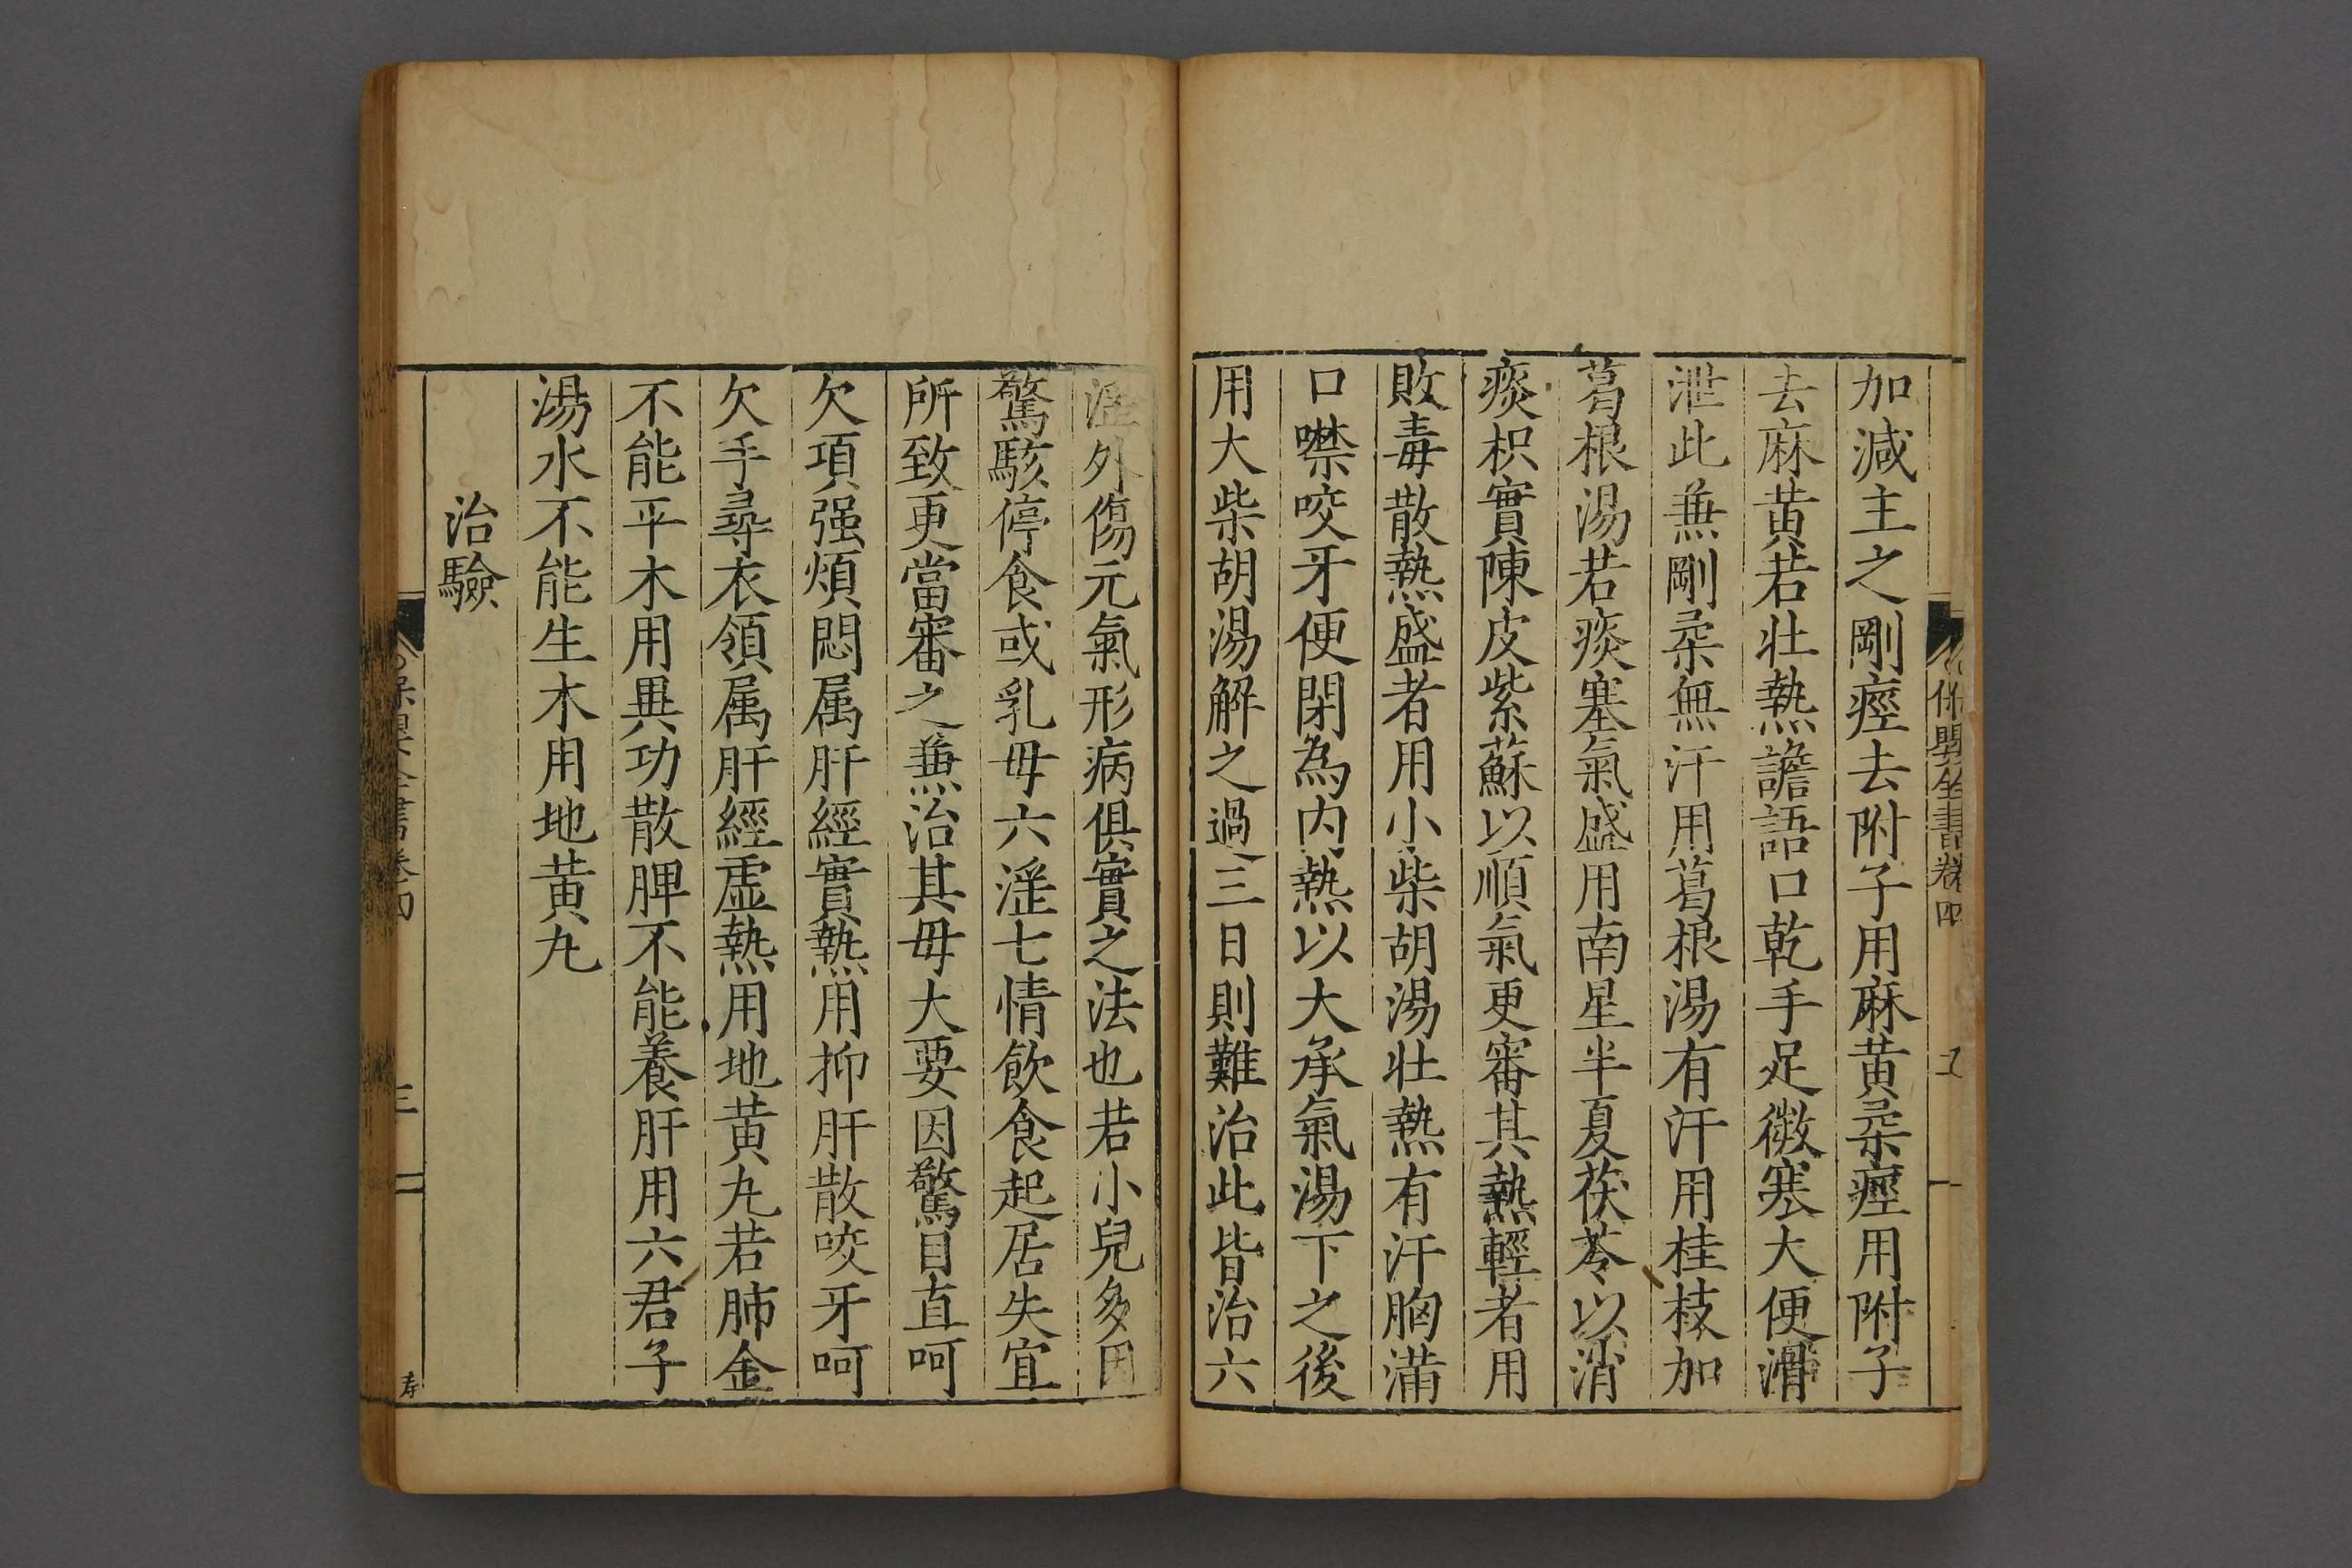 加減主之剛痙去附子用麻黄柔痙用附子
去麻黄若壯熱譫語口乾手足微寒大便滑
泄此兼剛柔無汗用葛根湯有汗用桂枝加
葛根湯若痰塞氣盛用南星半夏茯苓以消
痰枳實陳皮紫蘇以順氣更審其熱輕者用
敗毒散熱盛者用小柴胡湯壯熱有汗胸滿
口噤咬牙便閉為内熱以大承氣湯下之後
用大柴胡湯解之過三日則難治此皆治六
淫外傷元氣形病俱實之法也若小兒多因
驚駭停食或乳母六淫七情飲食起居失宜
所致更當審之兼治其母大要因驚目直呵
欠項强煩悶属肝經實熱用抑肝散咬牙呵
欠手尋衣領属肝經虛熱用地黄丸若肺金
不能平木用異功散脾不能養肝用六君子
湯水不能生木用地黄丸
治驗
保嬰全書卷四
三